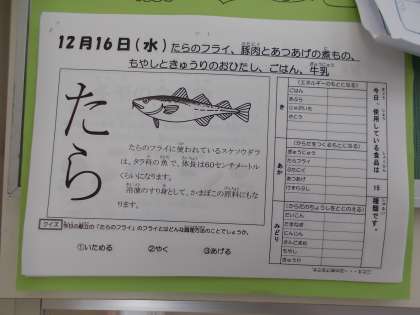 12月16日(水) たらのフライ、豚肉とあつあげの煮もの、
もやしときゅうりのおひだし、ごはん、牛乳
たら
たらのフライに使われているスケソウダラ
は、タラ科の魚で、体長は60センチメートル
くらいになります。
溶凍のすり身として、かまぼこの原料にもな
ります。
クイズ 今日の献立の「たらのフライ」のフライとはどんな調理方法のことでしょうか。
①いためる ②やく ③あげる
今日、使用している食品は 15 種類です。
き
(エネルギーのもとになる)
ごはん
あぶら
じゃがいも
さとう
あか
(からだをつくるもとになる)
ぎゅうにゅう
たらフライ
ぶたにく
あつあげ
みどり
(からだのちょうしをととのえる)
だいこん
たまねぎ
にんじん
もやし
きゅうり